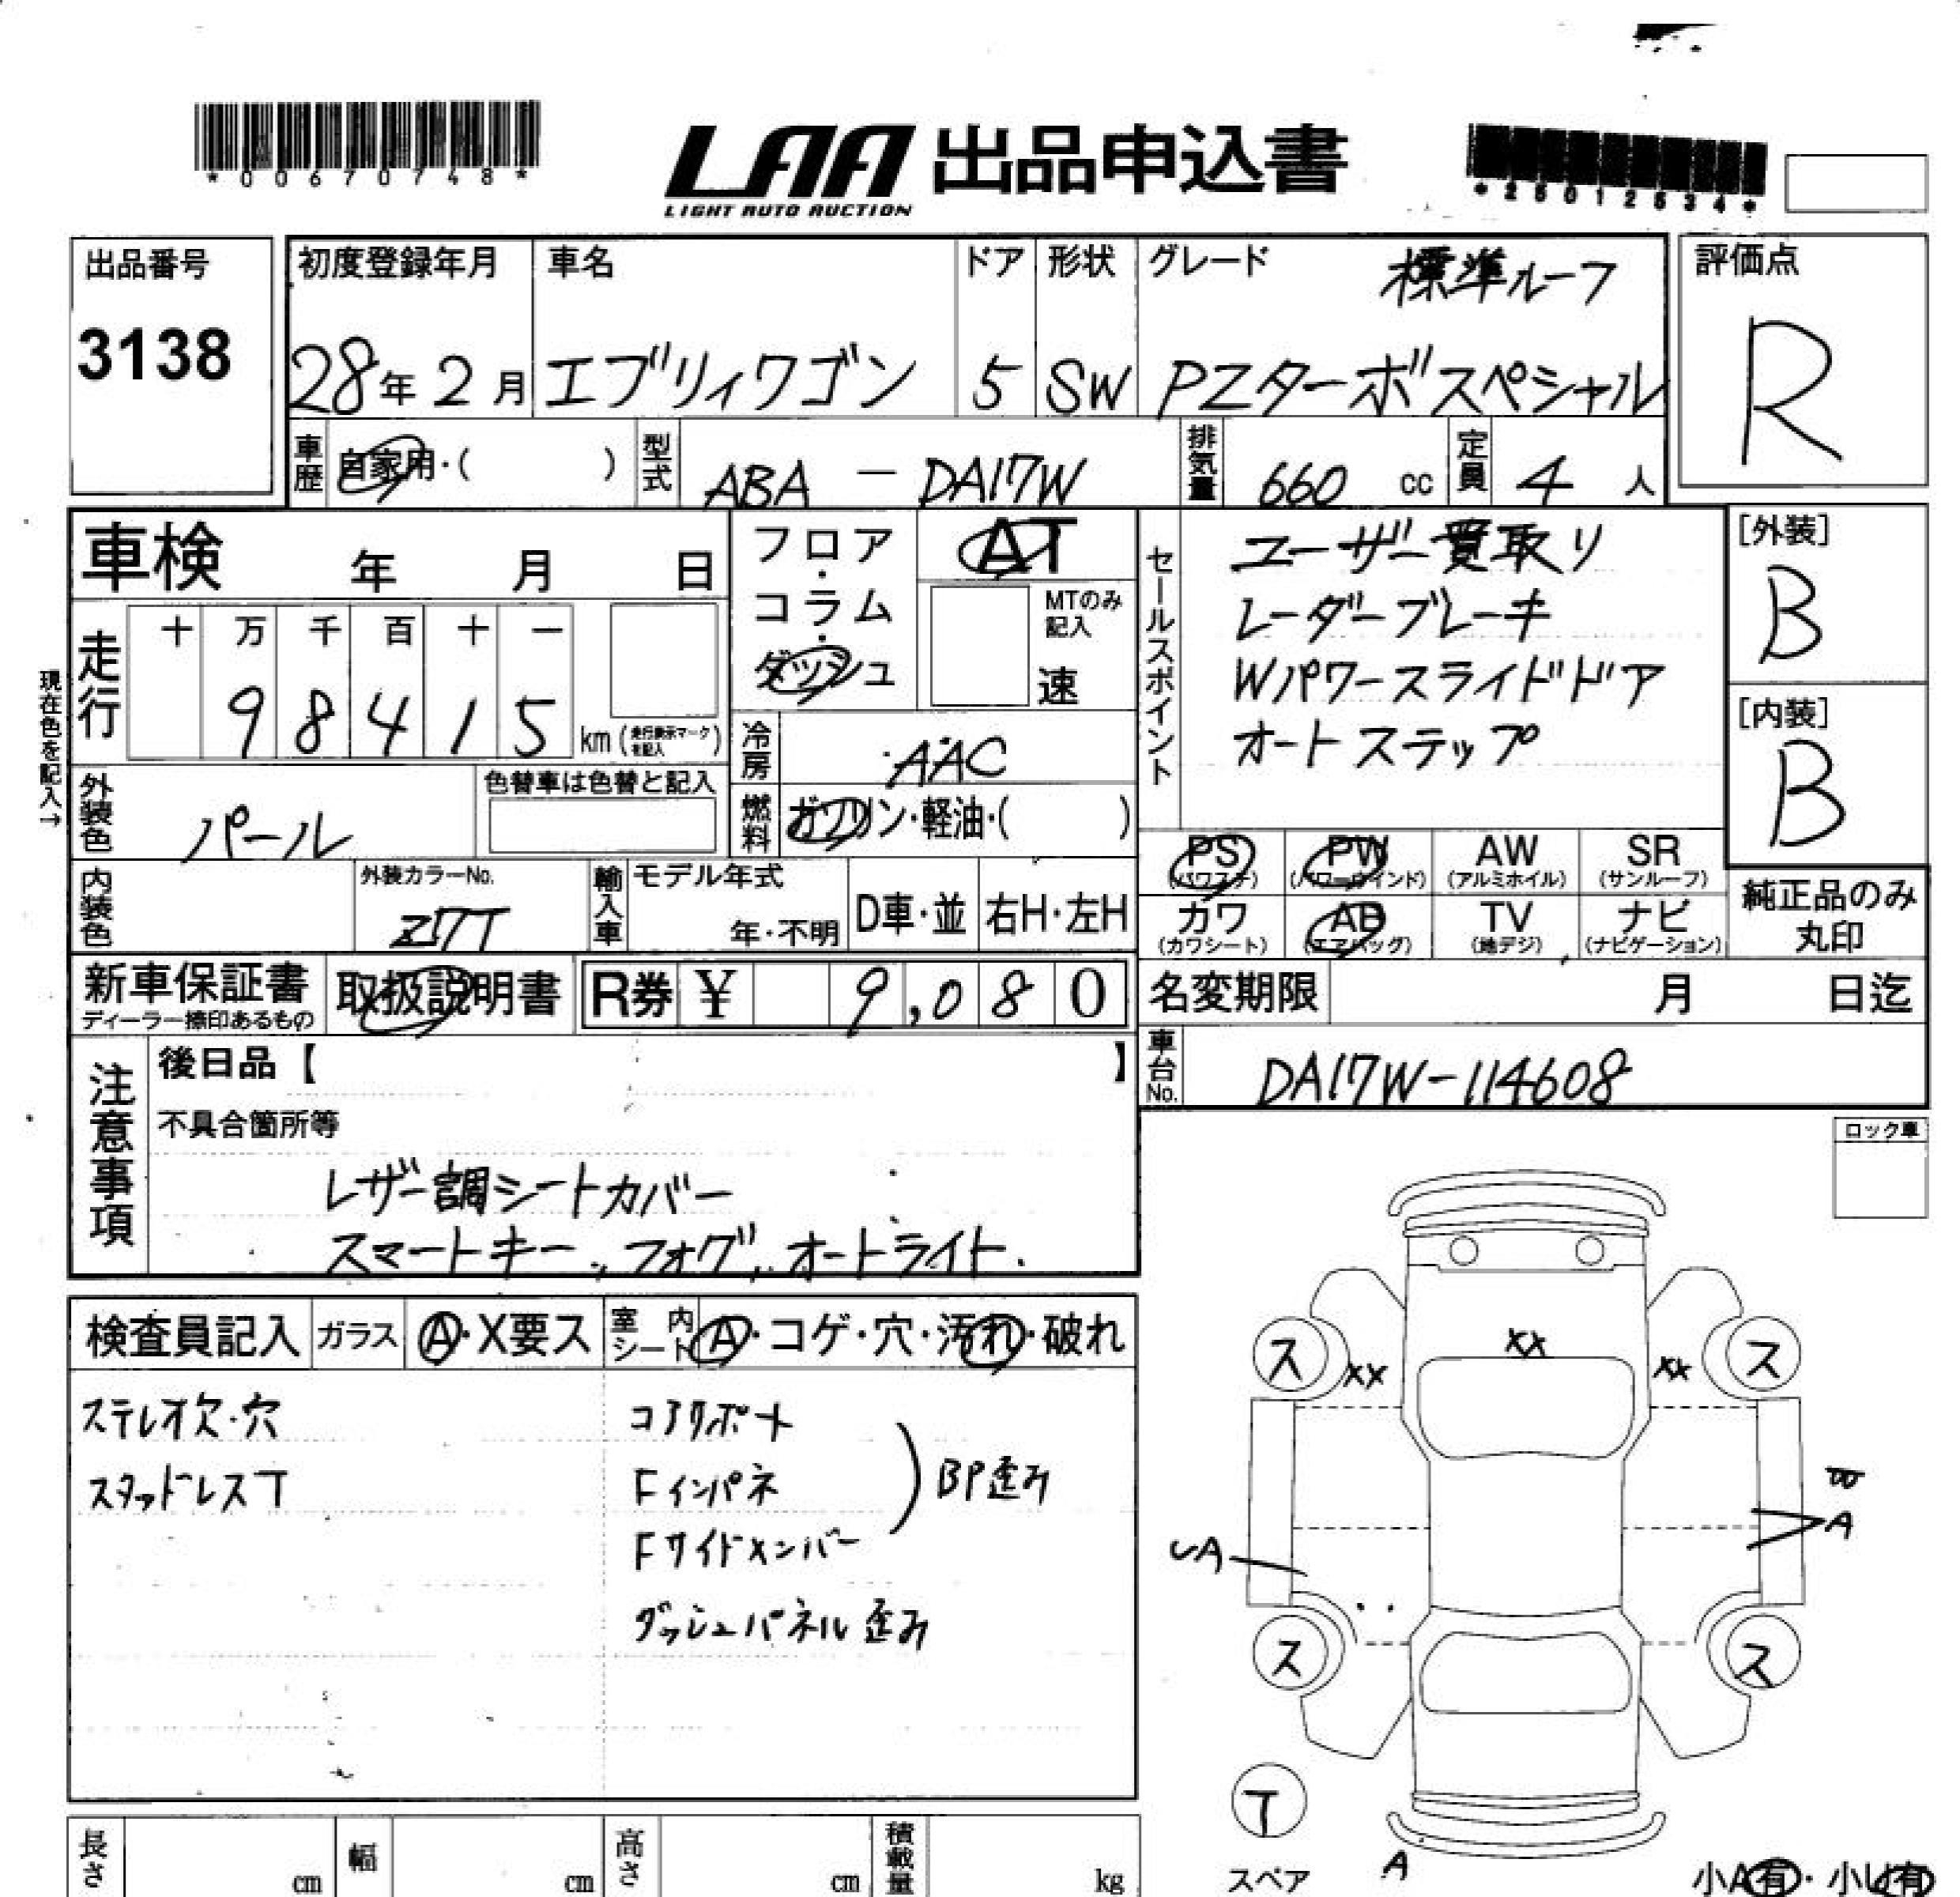 *00670748*
LAA 出品申込書
LIGHT AUTO AUCTION
*25012534*
出品番号
3138
初度登録年月
28年2月
車名
エブリィワゴン
ドア
5
形状
SW
グレード
標準ルーフ
PZターボスペシャル
評価点
R
車歴
自家用・( )
型式
ABA - DA17W
排気量
660 cc
定員
4 人
車検 年 月 日
フロア・コラム・ダッシュ
AT
MTのみ記入
速
セールスポイント
ユーザー買取り
レーダーブレーキ
Wパワースライドドア
オートステップ
[外装]
B
[内装]
B
現在色を記入→
走行
十 万 千 百 十 一
9 8 4 1 5
km (走行表示マークを記入)
冷房
AAC
外装色
パール
色替車は色替と記入
燃料
ガソリン・軽油・( )
PS (パワステ)
PW (パワーウインド)
AW (アルミホイル)
SR (サンルーフ)
カワ (カワシート)
AB (エアバッグ)
TV (地デジ)
ナビ (ナビゲーション)
純正品のみ丸印
内装色
外装カラーNo.
Z7T
輸入車
モデル年式
年・不明
D車・並
右H・左H
新車保証書
ディーラー捺印あるもの
取扱説明書
R券 ¥ 9,080
名変期限 月 日迄
車台No.
DA17W-114608
注意事項
後日品【 】
不具合箇所等
レザー調シートカバー
スマートキー、フォグ、オートライト.
ロック車
検査員記入
ガラス
A・X要ス
室内シート
A・コゲ・穴・汚れ・破れ
ステレオ欠・穴
スタッドレスT
コアサポート
Fインパネ
Fサイドメンバー
BP歪み
ダッシュパネル歪み
XX
XX
XX
ス
ス
A
ス
ス
T
スペア
A
小A有・小U有
長さ cm
幅 cm
高さ cm
積載量 kg